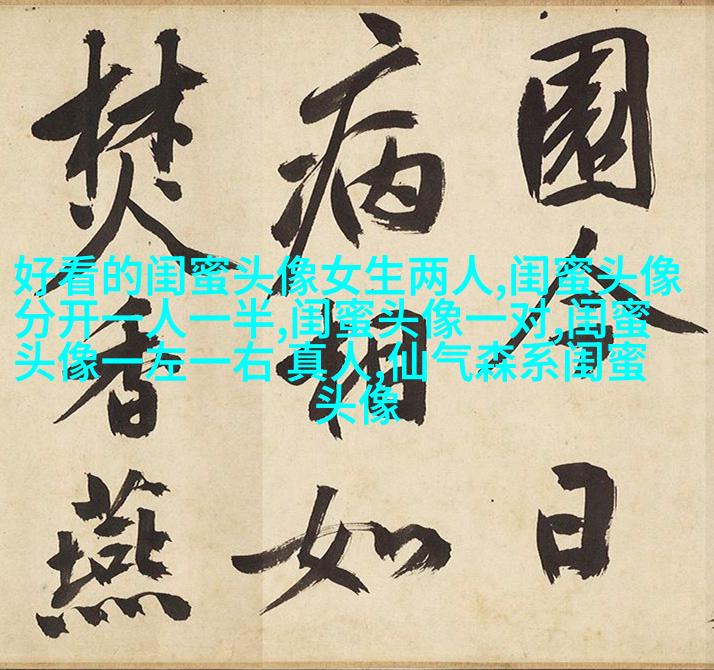 好看的闺蜜头像女生两人,闺蜜头像
分开一人一半,闺蜜头像一对,闺蜜
头像一左一右 真人,仙气森系闺蜜
头像
園今日
病相如
焚香燕